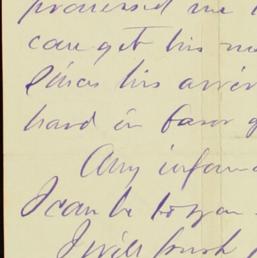 promised me
can get his
Since his arriv
hard in favor
Any inform
I can be to you
I will push